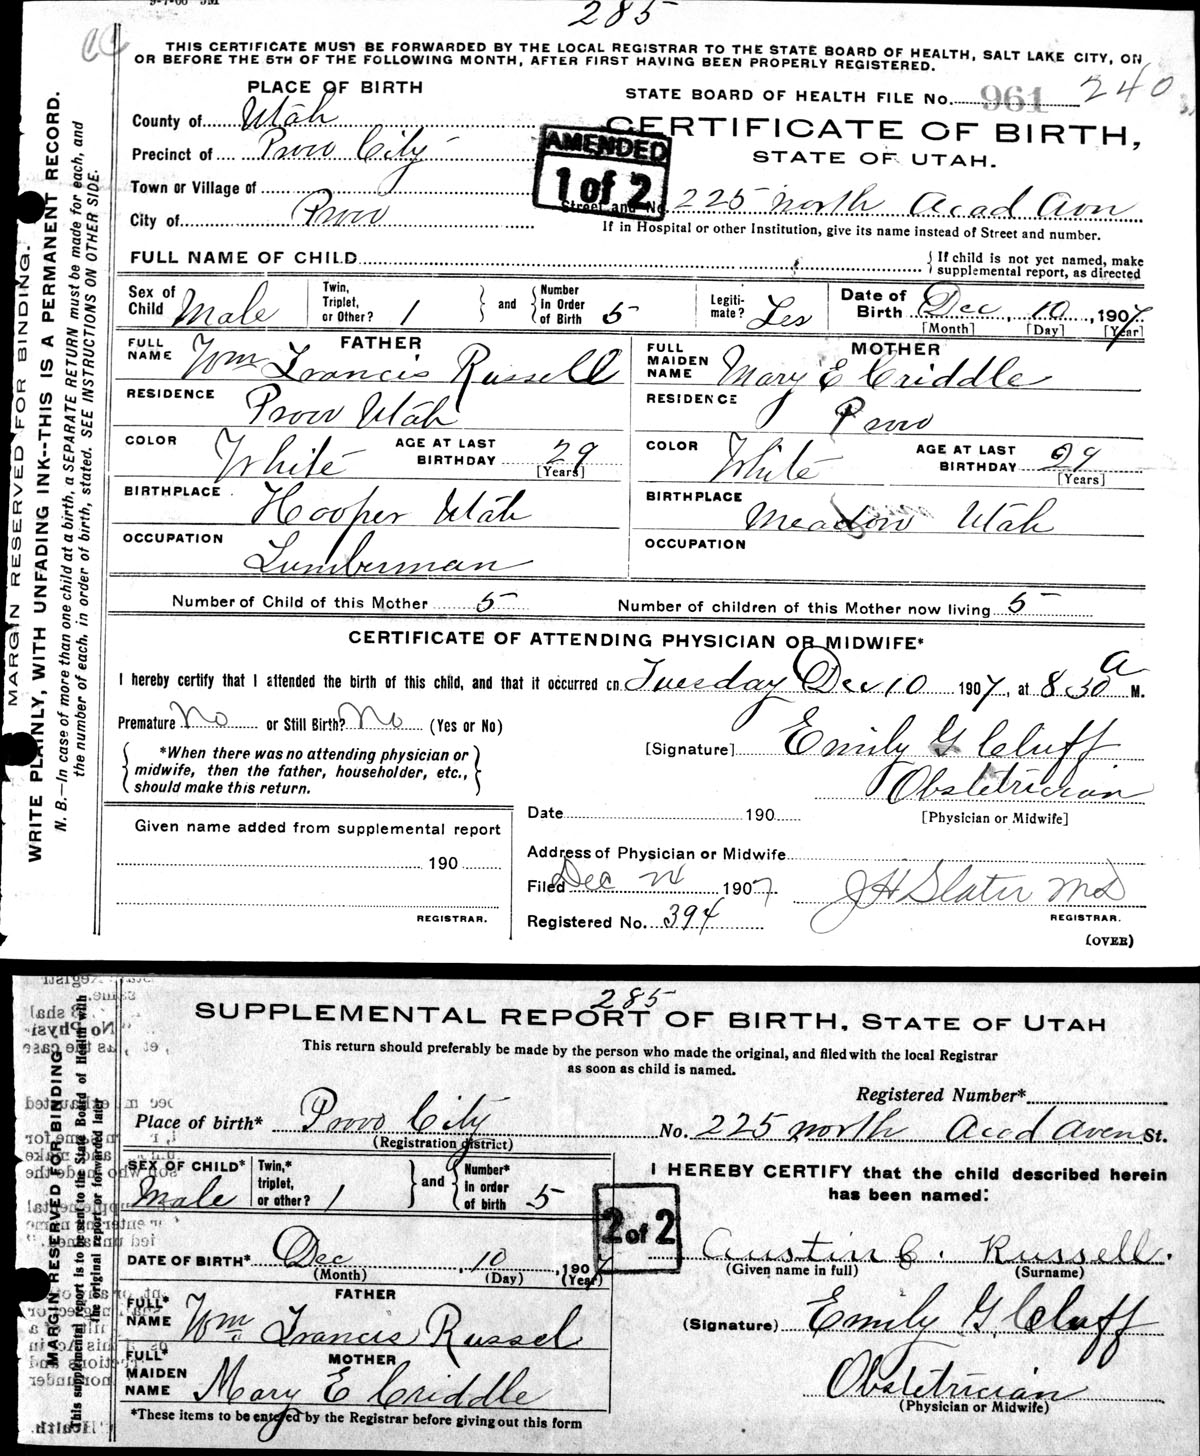 285
THIS CERTIFICATE MUST BE FORWARDED BY THE LOCAL REGISTRAR TO THE STATE BOARD OF HEALTH, SALT LAKE CITY, ON
OR BEFORE THE 5TH OF THE FOLLOWING MONTH, AFTER FIRST HAVING BEEN PROPERLY REGISTERED.
MARGIN RESERVED FOR BINDING.
WRITE PLAINLY, WITH UNFADING INK--THIS IS A PERMANENT RECORD.
N. B.—In case of more than one child at a birth, a SEPARATE RETURN must be made for each, and
the number of each, in order of birth, stated. SEE INSTRUCTIONS ON OTHER SIDE.
PLACE OF BIRTH
STATE BOARD OF HEALTH FILE No. 961 240
County of Utah
CERTIFICATE OF BIRTH,
Precinct of Provo City
STATE OF UTAH.
AMENDED
1 of 2
Town or Village of
Street and No. 225 North Acad Avn
City of Provo
If in Hospital or other Institution, give its name instead of Street and number.
FULL NAME OF CHILD
{ If child is not yet named, make
supplemental report, as directed
Sex of Child Male
Twin, Triplet, or Other? 1
} and {
Number In Order of Birth 5
Legitimate? Yes
Date of Birth Dec 10, 1907
[Month] [Day] [Year]
FATHER
FULL NAME Wm Francis Russell
RESIDENCE Provo Utah
COLOR White AGE AT LAST BIRTHDAY 29 [Years]
BIRTHPLACE Hooper Utah
OCCUPATION Lumberman
MOTHER
FULL MAIDEN NAME Mary E Criddle
RESIDENCE Provo
COLOR White AGE AT LAST BIRTHDAY 29 [Years]
BIRTHPLACE Meadow Utah
OCCUPATION
Number of Child of this Mother 5 Number of children of this Mother now living 5
CERTIFICATE OF ATTENDING PHYSICIAN OR MIDWIFE*
I hereby certify that I attended the birth of this child, and that it occurred on Tuesday Dec 10 1907, at 8 30 a M.
Premature No or Still Birth? No (Yes or No)
[Signature] Emily G Cluff
*When there was no attending physician or
midwife, then the father, householder, etc.,
should make this return.
Obstetrician
[Physician or Midwife]
Date 190
Given name added from supplemental report
190
REGISTRAR.
Address of Physician or Midwife
Filed Dec 24 1907 J H Slater MD
REGISTRAR.
Registered No. 394
(OVER)
285
SUPPLEMENTAL REPORT OF BIRTH, STATE OF UTAH
This return should preferably be made by the person who made the original, and filed with the local Registrar
as soon as child is named.
MARGIN RESERVED FOR BINDING
This supplemental report is to be sent to the State Board of Health with
the original report or forwarded later
Registered Number*
Place of birth* Provo City No. 225 North Acad Aven St.
(Registration district)
SEX OF CHILD* Male
Twin,* triplet, or other? 1
} and {
Number* in order of birth 5
I HEREBY CERTIFY that the child described herein
has been named:
2 of 2
DATE OF BIRTH* Dec 10, 1907
(Month) (Day) (Year)
Austin C. Russell.
(Given name in full) (Surname)
FATHER
FULL* NAME Wm Francis Russel
(Signature) Emily G. Cluff
MOTHER
FULL* MAIDEN NAME Mary E Criddle
Obstetrician
(Physician or Midwife)
*These items to be entered by the Registrar before giving out this form